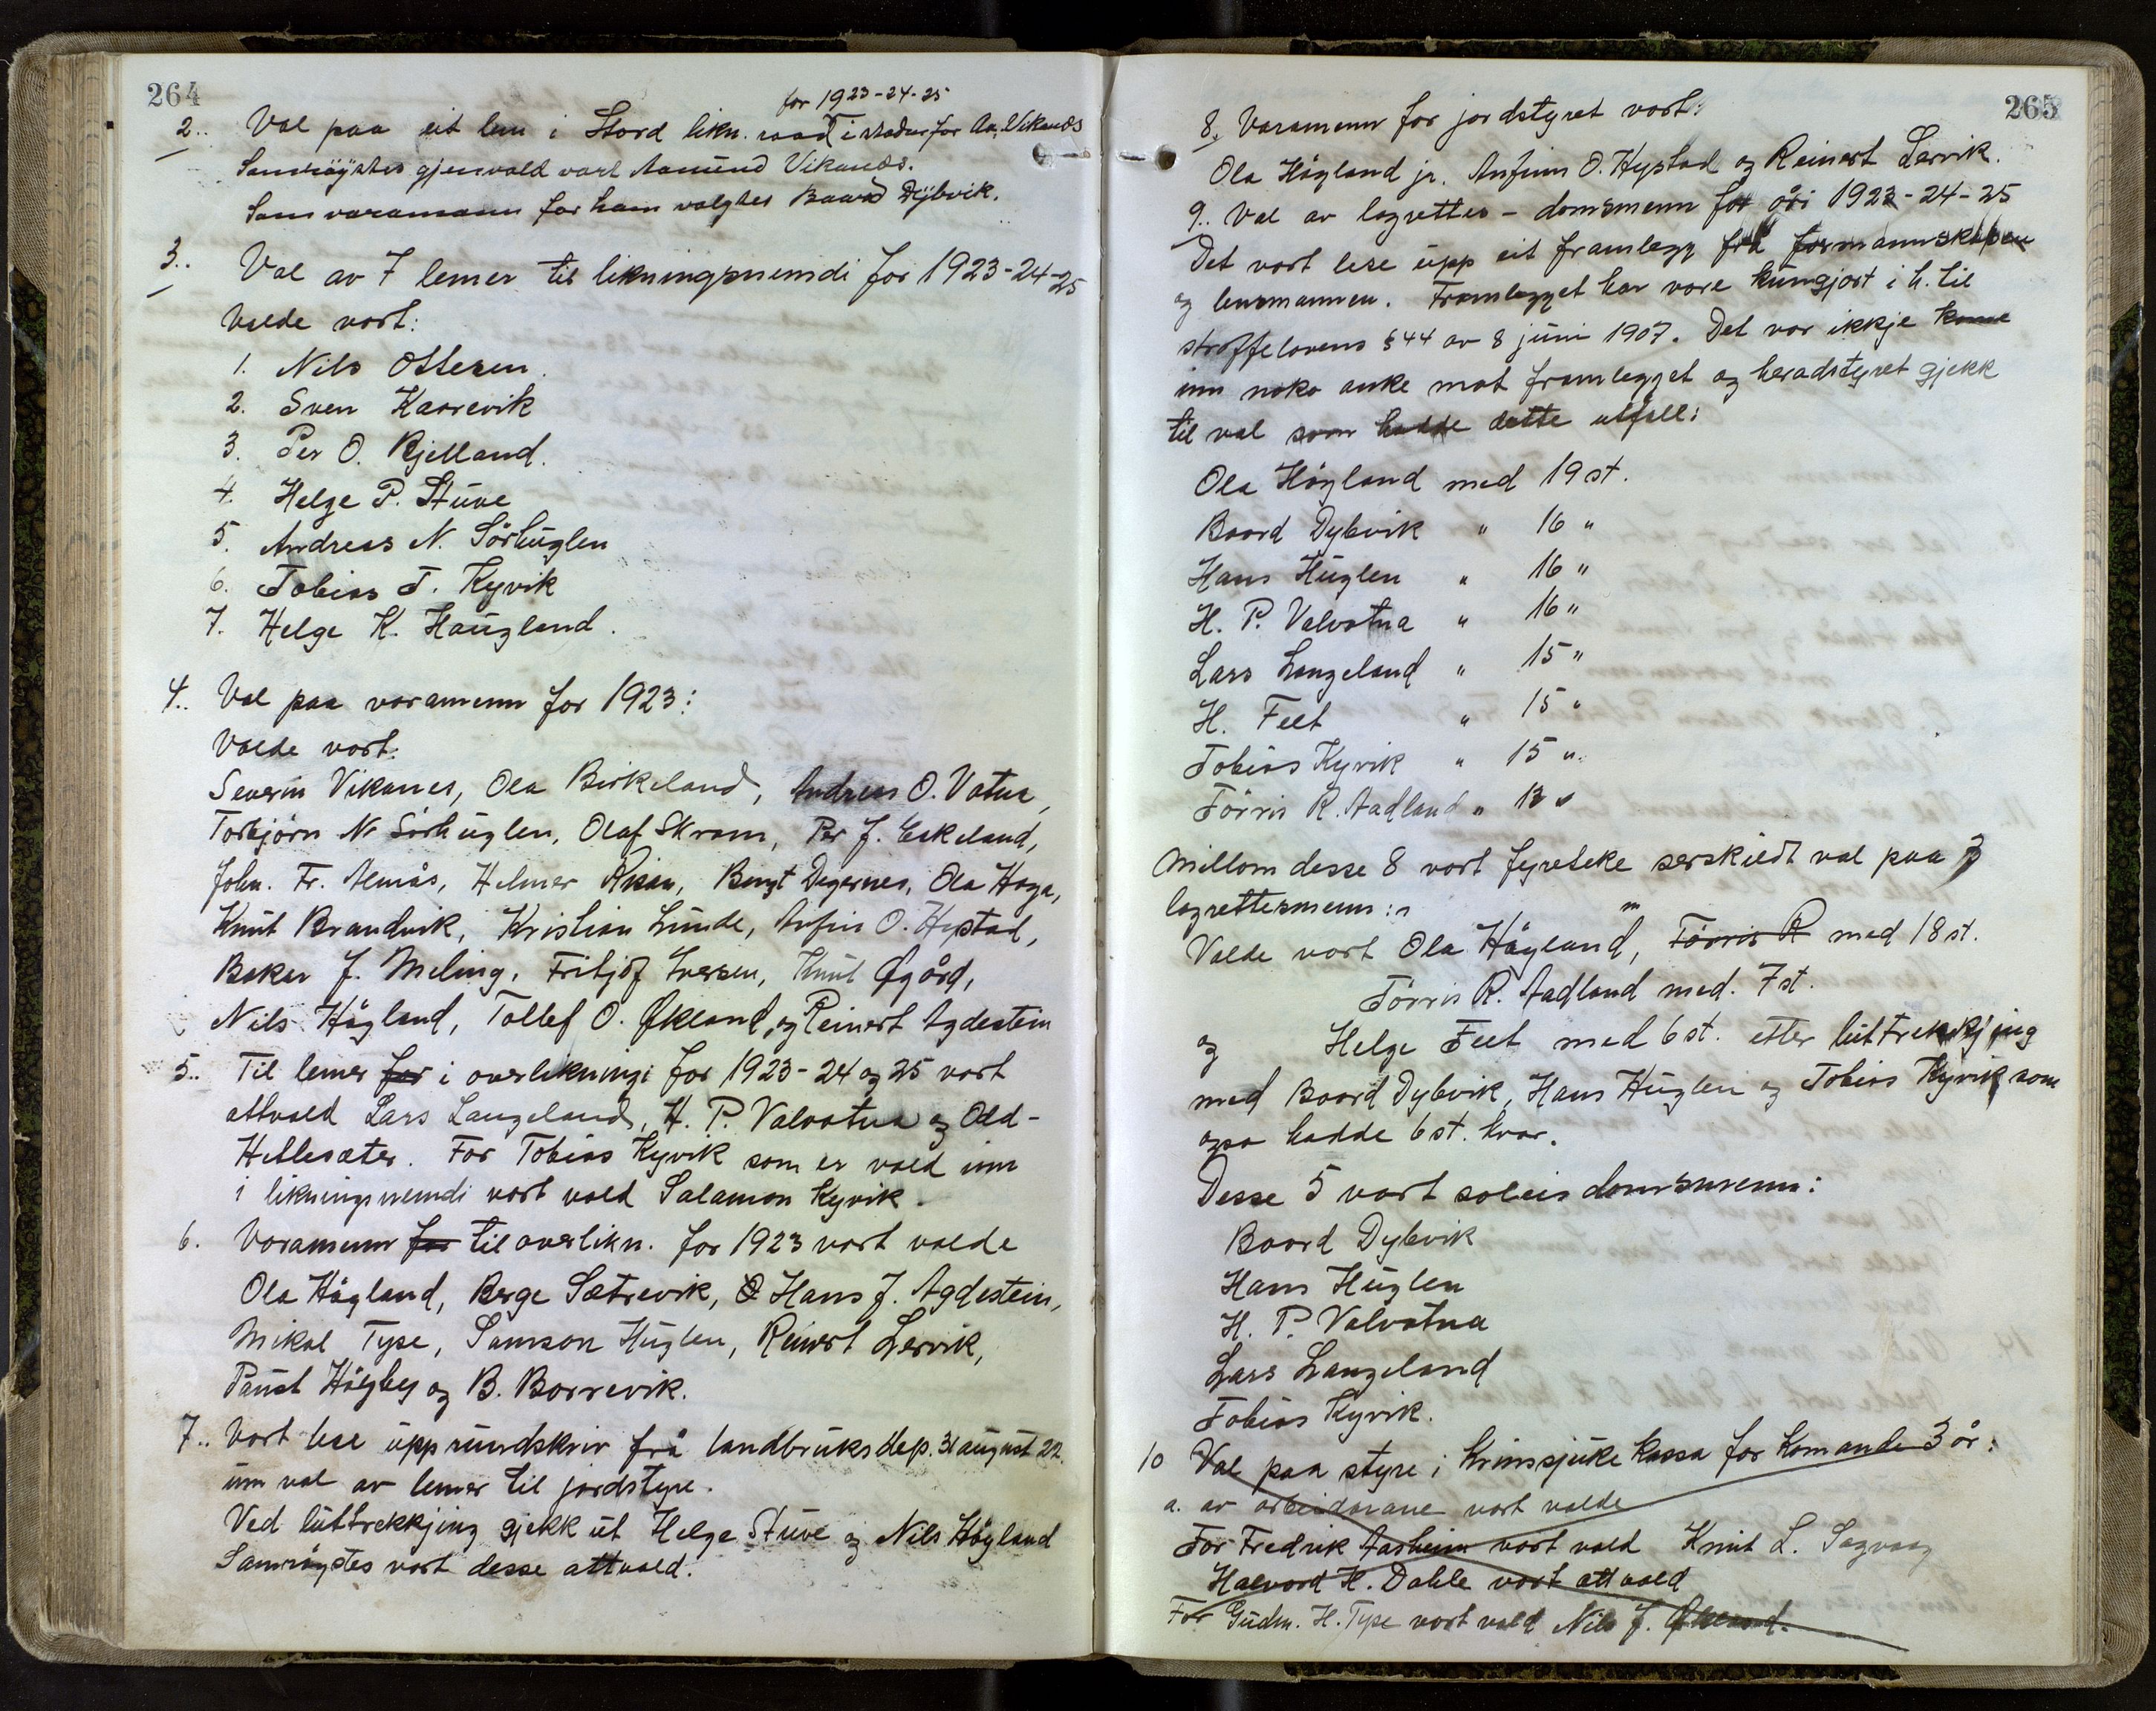 264
for 1923-24-25
2.. Val paa eit lem i Stord likn. raad i stadur for Am. Vikanes
Samröystes gjenvald vart Aamund Vikanes.
Som varamann for ham valgtes Baard Dybvik.
3.. Val av 7 lemer til likningsnemdi for 1923-24-25
Valde vart:
1. Nils Ottesen.
2. Sven Kaarevik
3. Per O. Kjelland.
4. Helge P. Stuve
5. Andreas N. Sörhuglen
6. Tobias T. Kyvik
7. Helge K. Haugland.
4.. Val paa varamenn for 1923:
Valde vart:
Severin Vikanes, Ola Birkeland, Andreas O. Vatna,
Torbjörn N. Sörhuglen, Olaf Skram, Per J. Eskeland,
John. Fr. Almås, Helmer Risan, Bengt Degernes, Ola Haga,
Knut Brandvik, Kristian Lunde, Anfin O. Hystad,
Baker J. Meling, Fritjof Iversen, Knut Øgård,
Nils Högland, Tollef O. Økland, og Reinert Agdestein
5.. Til lemer for i overlikningi for 1923-24 og 25 vart
attvald Lars Langeland, H. P. Valvatna og Odd-
Hillesæter. For Tobias Kyvik som er vald inn
i likningsnemdi vart vald Salamon Kyvik.
6. Varamenn for til overlikn. for 1923 vart valde
Ola Högland, Berge Sætrevik, O Hans J. Agdestein,
Mikal Tyse, Samson Huglen, Reinert Lervik,
Paust Högby og B. Borrevik.
7.. Vart lese upp rundskriv frå landbruksdep. 31 august 22.
um val av lemer til jordstyre.
Ved luttrekkjing gjekk ut Helge Stuve og Nils Högland
Samröystes vart desse attvald.
265
8. Varamenn for jordstyret vart:
Ola Högland jr. Anfinn O. Hystad og Reinert Lervik.
9.. Val av lagrettes- domsmenn for åri 1923-24-25
Det vart lese upp eit framlegg frå formannskapen
og lensmannen. Framlegget har vore kunngjort i h. til
straffelovens § 44 av 8 juni 1907. Det var ikkje kome
inn noko anke mot framlegget og heradstyret gjekk
til val som hadde dette utfall:
Ola Högland med 19 st.
Baard Dybvik " 16 "
Hans Huglen " 16 "
H. P. Valvatna " 16 "
Lars Langeland " 15 "
H. Feet " 15 "
Tobias Kyvik " 15 "
Törris R. Aadland " 13 "
Millom desse 8 vart fyreteke serskildt val paa 3
lagrettesmenn:
Valde vart Ola Högland, Törris R med 18 st.
Törris R. Aadland med. 7 st.
og Helge Feet med 6 st. etter luttrekkjing
med Baard Dybvik, Hans Huglen og Tobias Kyvik som
ogsa hadde 6 st. kvar.
Desse 5 vart soleis domsmenn:
Baard Dybvik
Hans Huglen
H. P. Valvatna
Lars Langeland
Tobias Kyvik.
10 Val paa styre i krinssjuke kassa for komande 3 år:
a. av arbeidarane vart valde
For Fredrik Aasheim vart vald Knut L. Sagvaag
Halvard H. Dahle vart attvald
For Gudm. H. Tyse vart vald Nils J. Økland.